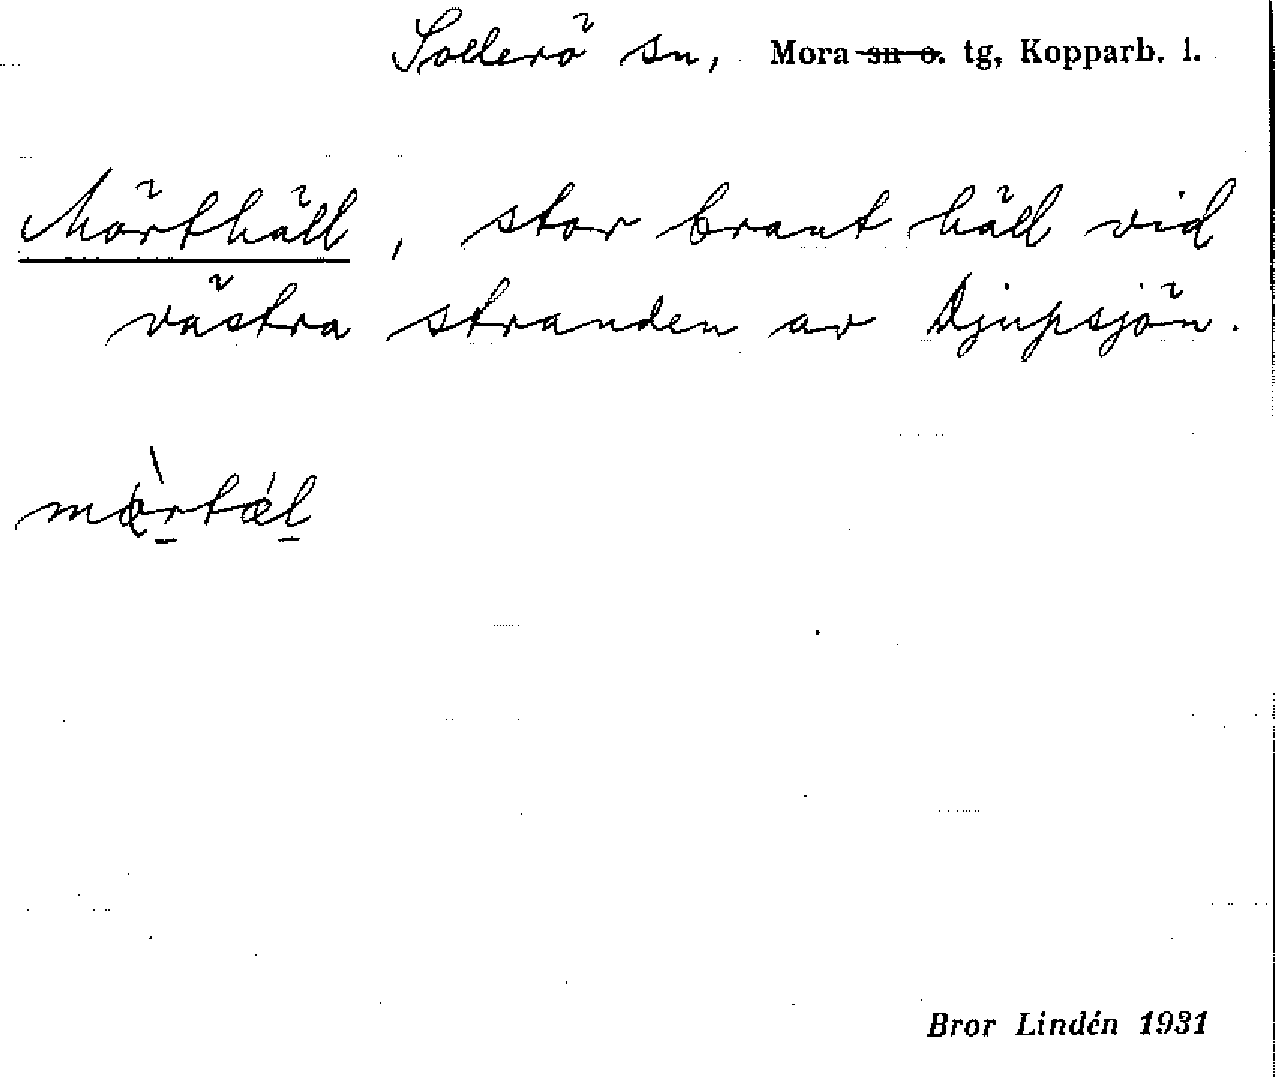 Sollerö sn, Mora sn o. tg, Kopparb. l.
Mörthäll, stor brant häll vid
västra stranden av Djupsjön.
mǫ̀rtǽl
Bror Lindén 1931